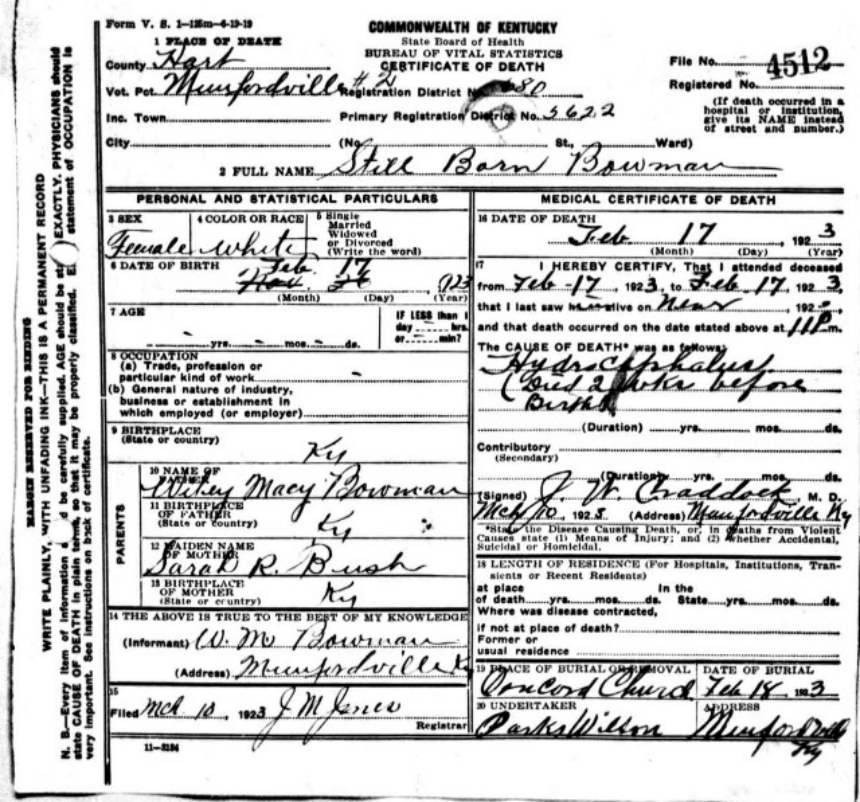 Form V. S. 1—125m—6-19-19
COMMONWEALTH OF KENTUCKY
State Board of Health
BUREAU OF VITAL STATISTICS
CERTIFICATE OF DEATH
1 PLACE OF DEATH
County Hart
Vot. Pct. Munfordville #2 Registration District No. 680
Inc. Town Primary Registration District No. 5622
City (No. St., Ward)
File No. 4512
Registered No.
(If death occurred in a
hospital or institution,
give its NAME instead
of street and number.)
2 FULL NAME Still Born Bowman
PERSONAL AND STATISTICAL PARTICULARS
3 SEX Female
4 COLOR OR RACE White
5 Single
Married
Widowed
or Divorced
(Write the word)
6 DATE OF BIRTH
Feb. 17
, 1923
(Month) (Day) (Year)
7 AGE
yrs. mos. ds.
IF LESS than 1
day hrs.
or min?
8 OCCUPATION
(a) Trade, profession or
particular kind of work
(b) General nature of industry,
business or establishment in
which employed (or employer)
9 BIRTHPLACE
(State or country) Ky
PARENTS
10 NAME OF
FATHER
Wiley Macy Bowman
11 BIRTHPLACE
OF FATHER
(State or country) Ky
12 MAIDEN NAME
OF MOTHER
Sarah R. Bush
13 BIRTHPLACE
OF MOTHER
(State or country) Ky
14 THE ABOVE IS TRUE TO THE BEST OF MY KNOWLEDGE
(Informant) W. M Bowman
(Address) Munfordville Ky
15
Filed Mch 10, 1923 J M Jones
Registrar
11—3184
MEDICAL CERTIFICATE OF DEATH
16 DATE OF DEATH
Feb 17, 1923
(Month) (Day) (Year)
17 I HEREBY CERTIFY, That I attended deceased
from Feb-17, 1923, to Feb-17, 1923,
that I last saw alive on , 192
and that death occurred on the date stated above at 11P m.
The CAUSE OF DEATH* was as follows:
Hydrocephalus
(Died 2 wks before
Birth)
(Duration) yrs. mos. ds.
Contributory
(Secondary)
(Duration) yrs. mos. ds.
(Signed) J. W. Craddock, M. D.
Mch 10, 1923 (Address) Munfordville Ky
*State the Disease Causing Death, or, in deaths from Violent
Causes state (1) Means of Injury; and (2) whether Accidental,
Suicidal or Homicidal.
18 LENGTH OF RESIDENCE (For Hospitals, Institutions, Tran-
sients or Recent Residents)
at place In the
of death yrs. mos. ds. State yrs. mos. ds.
Where was disease contracted,
if not at place of death?
Former or
usual residence
19 PLACE OF BURIAL OR REMOVAL
Concord Church
DATE OF BURIAL
Feb 18 1923
20 UNDERTAKER
Parks Wilson
ADDRESS
Munfordville
Ky
MARGIN RESERVED FOR BINDING
WRITE PLAINLY, WITH UNFADING INK—THIS IS A PERMANENT RECORD
N. B.—Every item of information be carefully supplied. AGE should be EXACTLY. PHYSICIANS should
state CAUSE OF DEATH in plain terms, so that it may be properly classified. statement of OCCUPATION is
very important. See instructions on back of certificate.